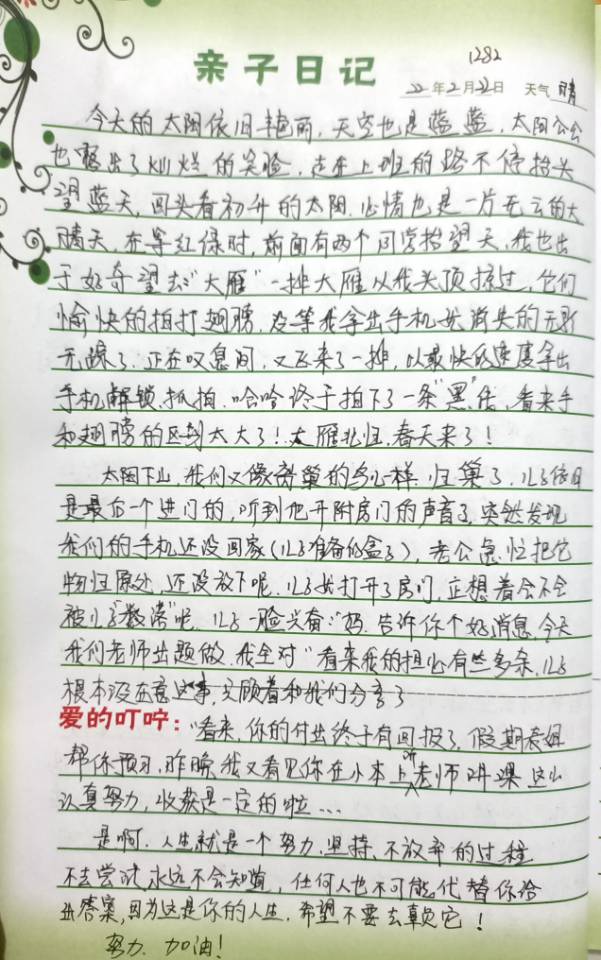 1282
亲子日记
22年2月22日 天气 晴
今天的太阳依旧艳丽，天空也是蓝蓝，太阳公公
也露出了灿烂的笑脸，走在上班的路不停抬头
望蓝天，回头看初升的太阳，心情也是一片无云的大
晴天，在等红绿时，前面有两个同学抬望天，我也出
于好奇望去“大雁”一排大雁从我头顶掠过，它们
愉快的拍打翅膀，没等我拿出手机就消失的无影
无踪了，正在叹息间，又飞来了一排，以最快的速度拿出
手机解锁，抓拍，哈哈终于拍下了一条“黑”线，看来手
和翅膀的区别太大了！大雁北归，春天来了！
太阳下山，我们又像离巢的鸟儿样，归巢了，儿子依旧
是最后一个进门的，听到他开附房门的声音了，突然发现
我们的手机还没回家（儿子准备的盒子），老公急忙把它
物归原处，还没放下呢，儿子就打开了房门，正想着会不会
被儿子“教育”呢，儿子一脸兴奋：“妈，告诉你个好消息，今天
我们老师出题做，我全对”看来我的担心有些多余，儿子
根本没在意这事，只顾着和我们分享了
爱的叮咛：“看来，你的付出终于有回报了，假期表姐
帮你预习，昨晚我又看见你在小本上听老师讲课 这么
认真努力，收获是一定的啦...
是啊，人生就是一个努力、坚持、不放弃的过程
不去尝试，永远不会知道，任何人也不可能代替你给
出答案，因为这是你的人生，希望不要去辜负它！
努力，加油！